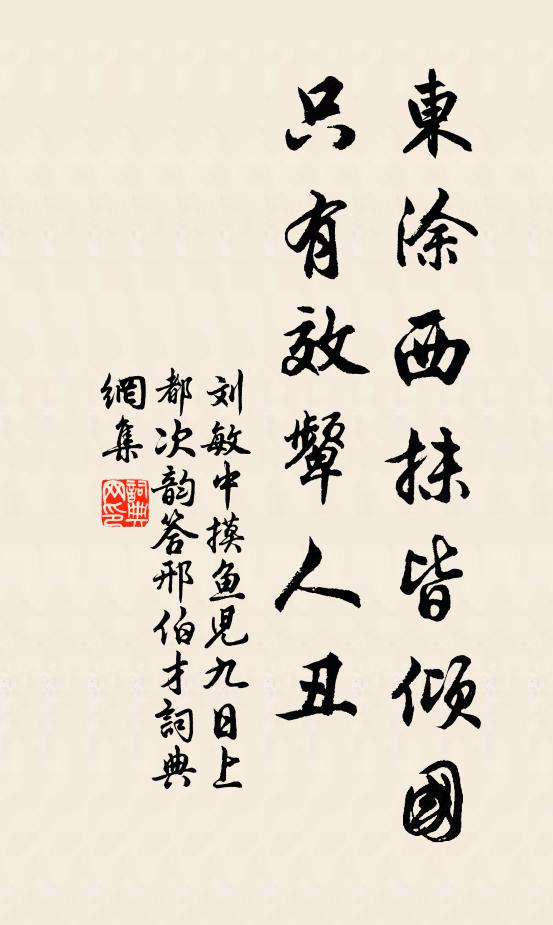 東涂西抹皆傾國
只有效顰人丑
刘敏中摸鱼児九日上
都次韵答邢伯才詞典
網集
詞典
网印